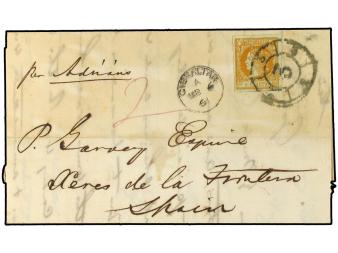 per Adriano
GIBRALTAR
A
MR
61
2
P. Garvey Esquire
Xeres de la Frontera
Spain